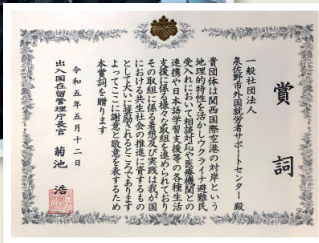 賞詞
一般社団法人
泉佐野市外国就労者サポートセンター殿
貴団体は関西国際空港の対岸という
地理的特性を活かしウクライナ避難民
受入れにおいて相談対応や医療機関との
連携や日本語学習支援等の各種生活
支援に係る様々な取組を進められており
その取組に係る着想及び実践は我が国
における共生社会の推進に資するもの
として大いに奨励されるところであります
よってここに謝意と敬意を表するため
本賞詞を贈ります
令和五年五月十二日
出入国在留管理庁長官 菊池浩